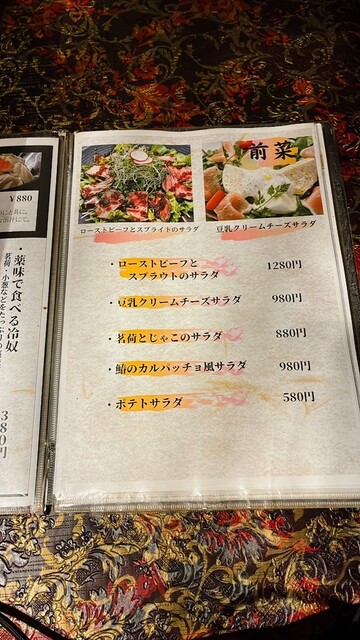 前菜
ローストビーフとスプライトのサラダ
豆乳クリームチーズサラダ
・ローストビーフと
スプラウトのサラダ 1280円
・豆乳クリームチーズサラダ 980円
・茗荷とじゃこのサラダ 880円
・鮪のカルパッチョ風サラダ 980円
・ポテトサラダ 580円
¥880
・薬味で食べる冷奴
茗荷・小葱などをたっぷり
380円